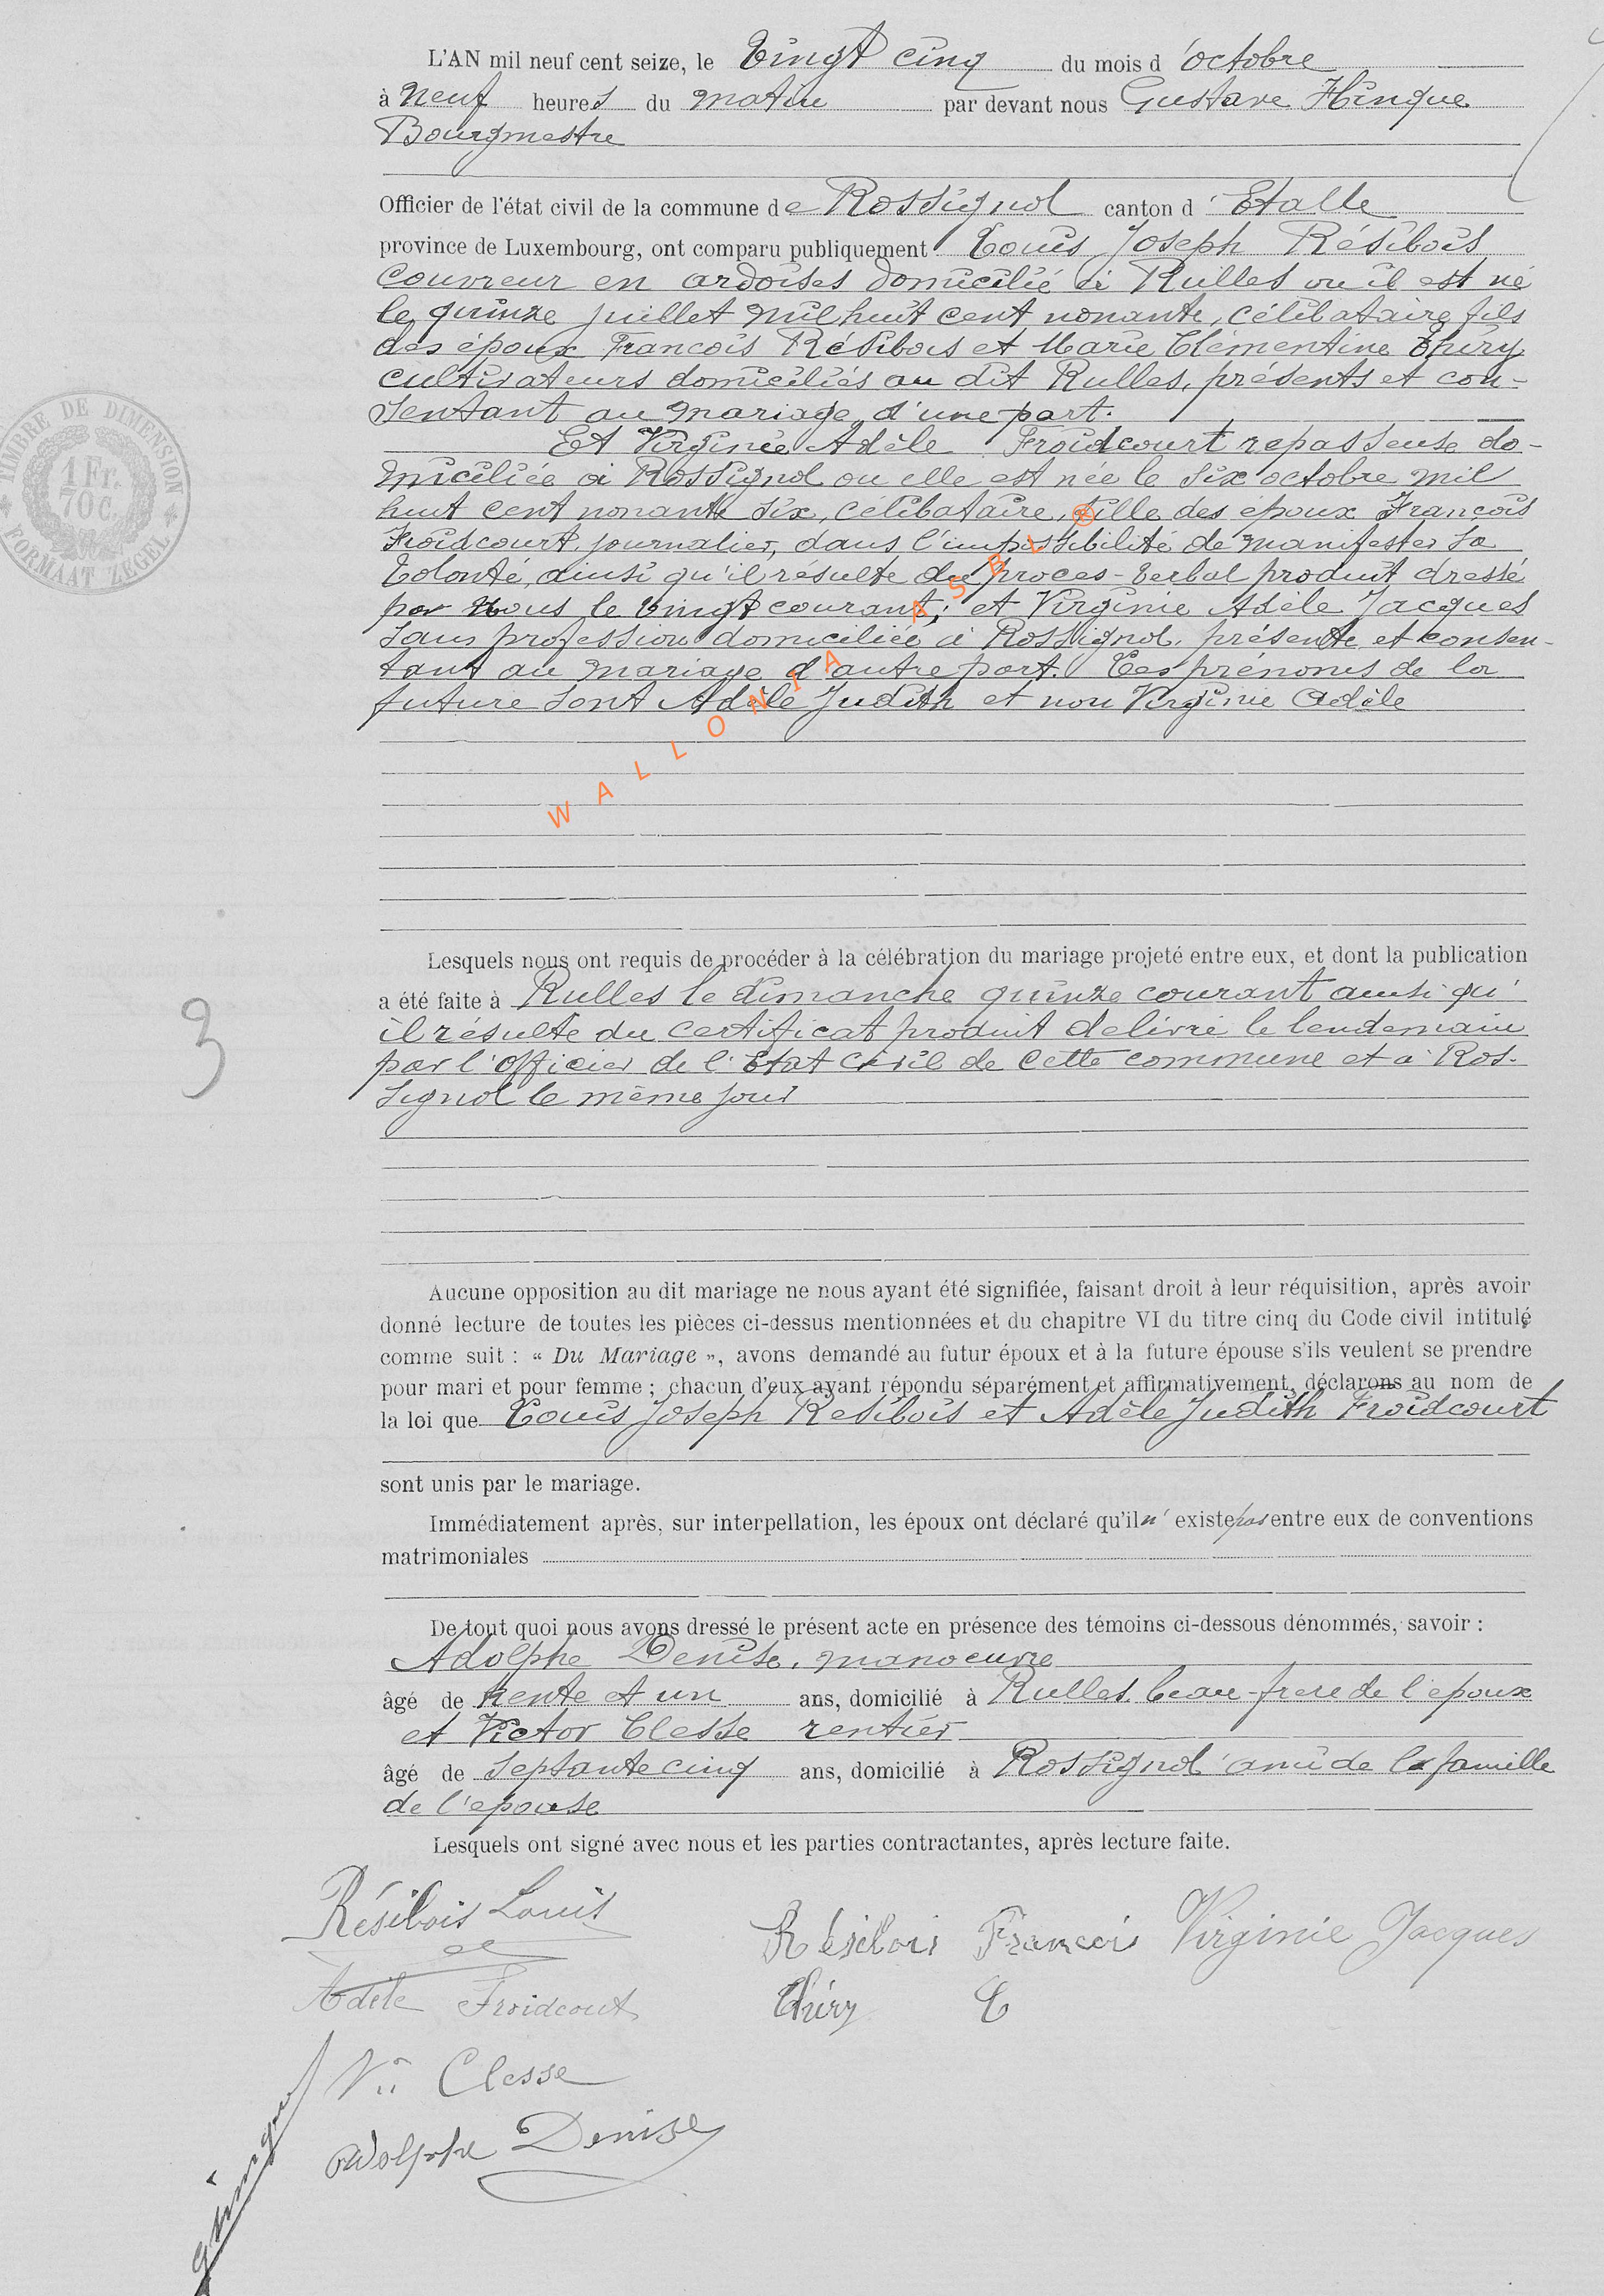 L'AN mil neuf cent seize, le Vingt cinq du mois d'octobre
à Neuf heures du matin par devant nous Gustave Hinque
Bourgmestre
Officier de l'état civil de la commune de Rossignol canton d'Etalle
province de Luxembourg, ont comparu publiquement Louis Joseph Résibois
couvreur en ardoises domicilié à Rulles ou il est né
le quinze juillet mil huit cent nonante, célibataire fils
des époux François Résibois et Marie Clémentine Thiry
cultivateurs domiciliés au dit Rulles, présents et con-
sentant au mariage d'une part.
Et Virginie Adèle Froidcourt repasseuse do-
miciliée à Rossignol ou elle est née le six octobre mil
huit cent nonante six, célibataire, fille des époux François
Froidcourt, journalier, dans l'impossibilité de manifester sa
volonté, ainsi qu'il résulte du procès-verbal produit dressé
par Nous le vingt courant; et Virginie Adèle Jacques
sans profession domiciliée à Rossignol, présente et consen-
tant au mariage d'autre part. Les prénoms de la
future sont Adèle Judith et non Virginie Adèle
WALLONIA ASBL ®
TIMBRE DE DIMENSION
1 Fr.
70 C.
FORMAAT ZEGEL
Lesquels nous ont requis de procéder à la célébration du mariage projeté entre eux, et dont la publication
a été faite à Rulles le dimanche quinze courant ainsi qu'
il résulte du certificat produit delivré le lendemain
par l'officier de l'Etat civil de cette commune et à Ros-
signol le même jour
3
Aucune opposition au dit mariage ne nous ayant été signifiée, faisant droit à leur réquisition, après avoir
donné lecture de toutes les pièces ci-dessus mentionnées et du chapitre VI du titre cinq du Code civil intitulé
comme suit : « Du Mariage », avons demandé au futur époux et à la future épouse s'ils veulent se prendre
pour mari et pour femme ; chacun d'eux ayant répondu séparément et affirmativement, déclarons au nom de
la loi que Louis Joseph Résibois et Adèle Judith Froidcourt
sont unis par le mariage.
Immédiatement après, sur interpellation, les époux ont déclaré qu'il n'existe pas entre eux de conventions
matrimoniales
De tout quoi nous avons dressé le présent acte en présence des témoins ci-dessous dénommés, savoir :
Adolphe Denise, manoeuvre
âgé de trente et un ans, domicilié à Rulles beau-frere de l'epoux
et Victor Clesse rentier
âgé de septante cinq ans, domicilié à Rossignol ami de la famille
de l'epouse
Lesquels ont signé avec nous et les parties contractantes, après lecture faite.
Résibois Louis
Résibois François Virginie Jacques
Adèle Froidcout
Thiry C
Vr Clesse
Adolphe Denise